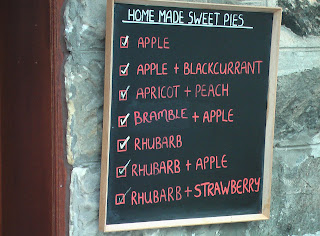 HOME MADE SWEET PIES
APPLE
APPLE + BLACKCURRANT
APRICOT + PEACH
BRAMBLE + APPLE
RHUBARB
RHUBARB + APPLE
RHUBARB + STRAWBERRY